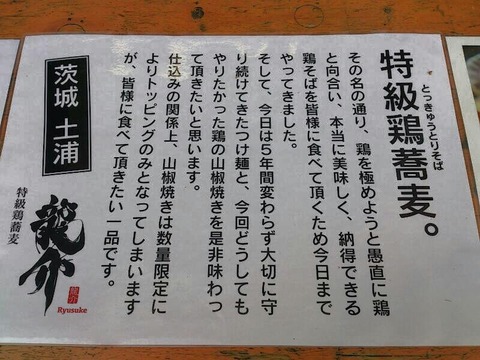 特級鶏蕎麦。
とっきゅうとりそば
その名の通り、鶏を極めようと愚直に鶏
と向合い、本当に美味しく、納得できる
鶏そばを皆様に食べて頂くため今日まで
やってきました。
そして、今日は5年間変わらず大切に守
り続けてきたつけ麺と、今回どうしても
やりたかった鶏の山椒焼きを是非味わっ
て頂きたいと思います。
仕込みの関係上、山椒焼きは数量限定に
よりトッピングのみとなってしまいます
が、皆様に食べて頂きたい一品です。
茨城 土浦
特級鶏蕎麦
龍介
Ryusuke